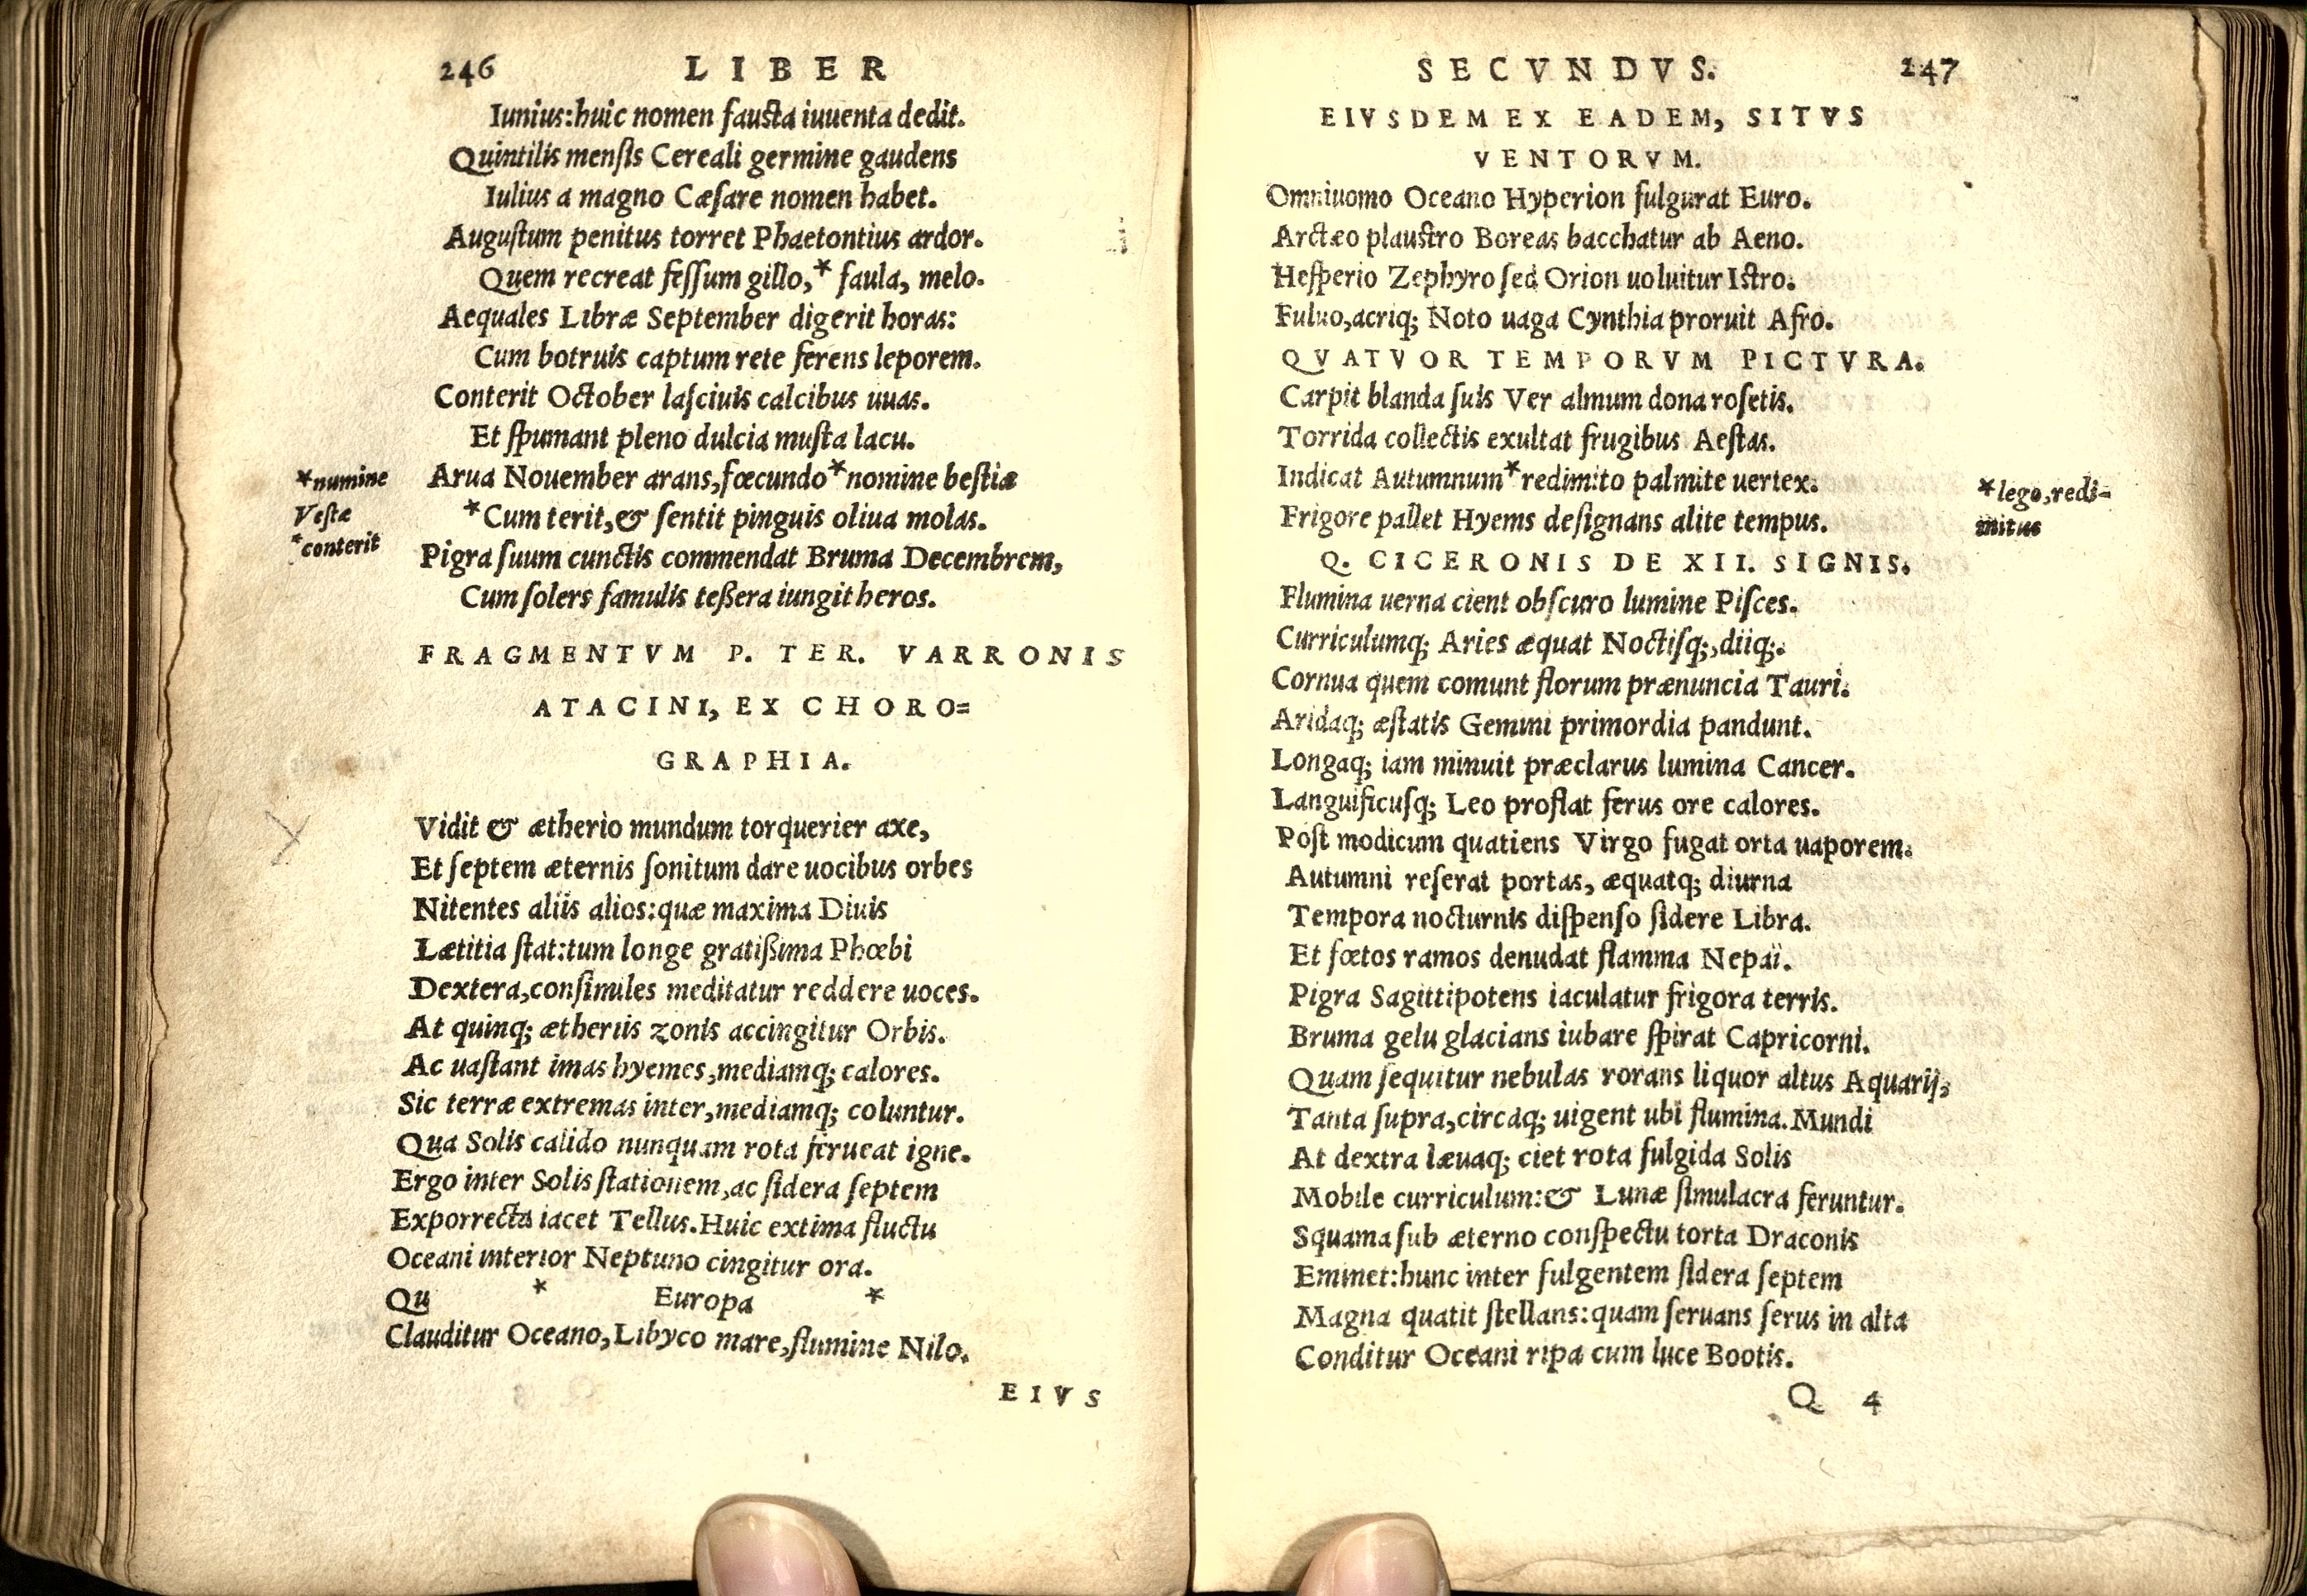 246 LIBER
Iunius:huic nomen fausta iuuenta dedit.
Quintilis mensis Cereali germine gaudens
Iulius a magno Cæsare nomen habet.
Augustum penitus torret Phaetontius ardor.
Quem recreat fessum gillo,* faula, melo.
Aequales Libræ September digerit horas:
Cum botruis captum rete ferens leporem.
Conterit October lasciuis calcibus uuas.
Et spumant pleno dulcia musta lacu.
Arua Nouember arans,fœcundo*nomine bestiæ
*Cum terit,& sentit pinguis oliua molas.
Pigra suum cunctis commendat Bruma Decembrem,
Cum solers famulis teßera iungit heros.
*numine
Vestæ
*conterit
FRAGMENTVM P. TER. VARRONIS
ATACINI, EX CHORO=
GRAPHIA.
Vidit & ætherio mundum torquerier axe,
Et septem æternis sonitum dare uocibus orbes
Nitentes aliis alios:quæ maxima Diuis
Lætitia stat:tum longe gratißima Phœbi
Dextera,consimiles meditatur reddere uoces.
At quinq; ætheriis zonis accingitur Orbis.
Ac uastant imas hyemes,mediamq; calores.
Sic terræ extremas inter,mediamq; coluntur.
Qua Solis calido nunquam rota ferueat igne.
Ergo inter Solis stationem,ac sidera septem
Exporrecta iacet Tellus.Huic extima fluctu
Oceani interior Neptuno cingitur ora.
Qu * Europa *
Clauditur Oceano,Libyco mare,flumine Nilo.
EIVS
SECVNDVS. 247
EIVSDEM EX EADEM, SITVS
VENTORVM.
Omniuomo Oceano Hyperion fulgurat Euro.
Arctæo plaustro Boreas bacchatur ab Aeno.
Hesperio Zephyro sed Orion uoluitur Istro.
Fuluo,acriq; Noto uaga Cynthia proruit Afro.
QVATVOR TEMPORVM PICTVRA.
Carpit blanda suis Ver almum dona rosetis.
Torrida collectis exultat frugibus Aestas.
Indicat Autumnum*redimito palmite uertex.
Frigore pallet Hyems designans alite tempus.
*lego,redi=
mitus
Q. CICERONIS DE XII. SIGNIS.
Flumina uerna cient obscuro lumine Pisces.
Curriculumq; Aries æquat Noctisq;,diiq;.
Cornua quem comunt florum prænuncia Tauri.
Aridaq; æstatis Gemini primordia pandunt.
Longaq; iam minuit præclarus lumina Cancer.
Languificusq; Leo proflat ferus ore calores.
Post modicum quatiens Virgo fugat orta uaporem.
Autumni reserat portas, æquatq; diurna
Tempora nocturnis dispenso sidere Libra.
Et fœtos ramos denudat flamma Nepaï.
Pigra Sagittipotens iaculatur frigora terris.
Bruma gelu glacians iubare spirat Capricorni.
Quam sequitur nebulas rorans liquor altus Aquarij,
Tanta supra,circaq; uigent ubi flumina.Mundi
At dextra læuaq; ciet rota fulgida Solis
Mobile curriculum:& Lunæ simulacra feruntur.
Squama sub æterno conspectu torta Draconis
Eminet:hunc inter fulgentem sidera septem
Magna quatit stellans:quam seruans serus in alta
Conditur Oceani ripa cum luce Bootis.
Q 4